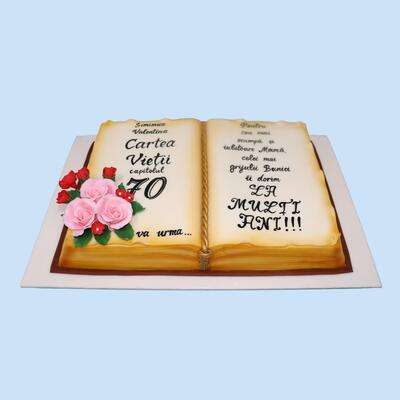 Siminica
Valentina
Cartea
Vieții
capitolul
70
va urma...
Pentru
cea mai
scumpă și
iubitoare Mamă
celei mai
grijulii Bunici
îi dorim
LA
MULȚI
ANI!!!